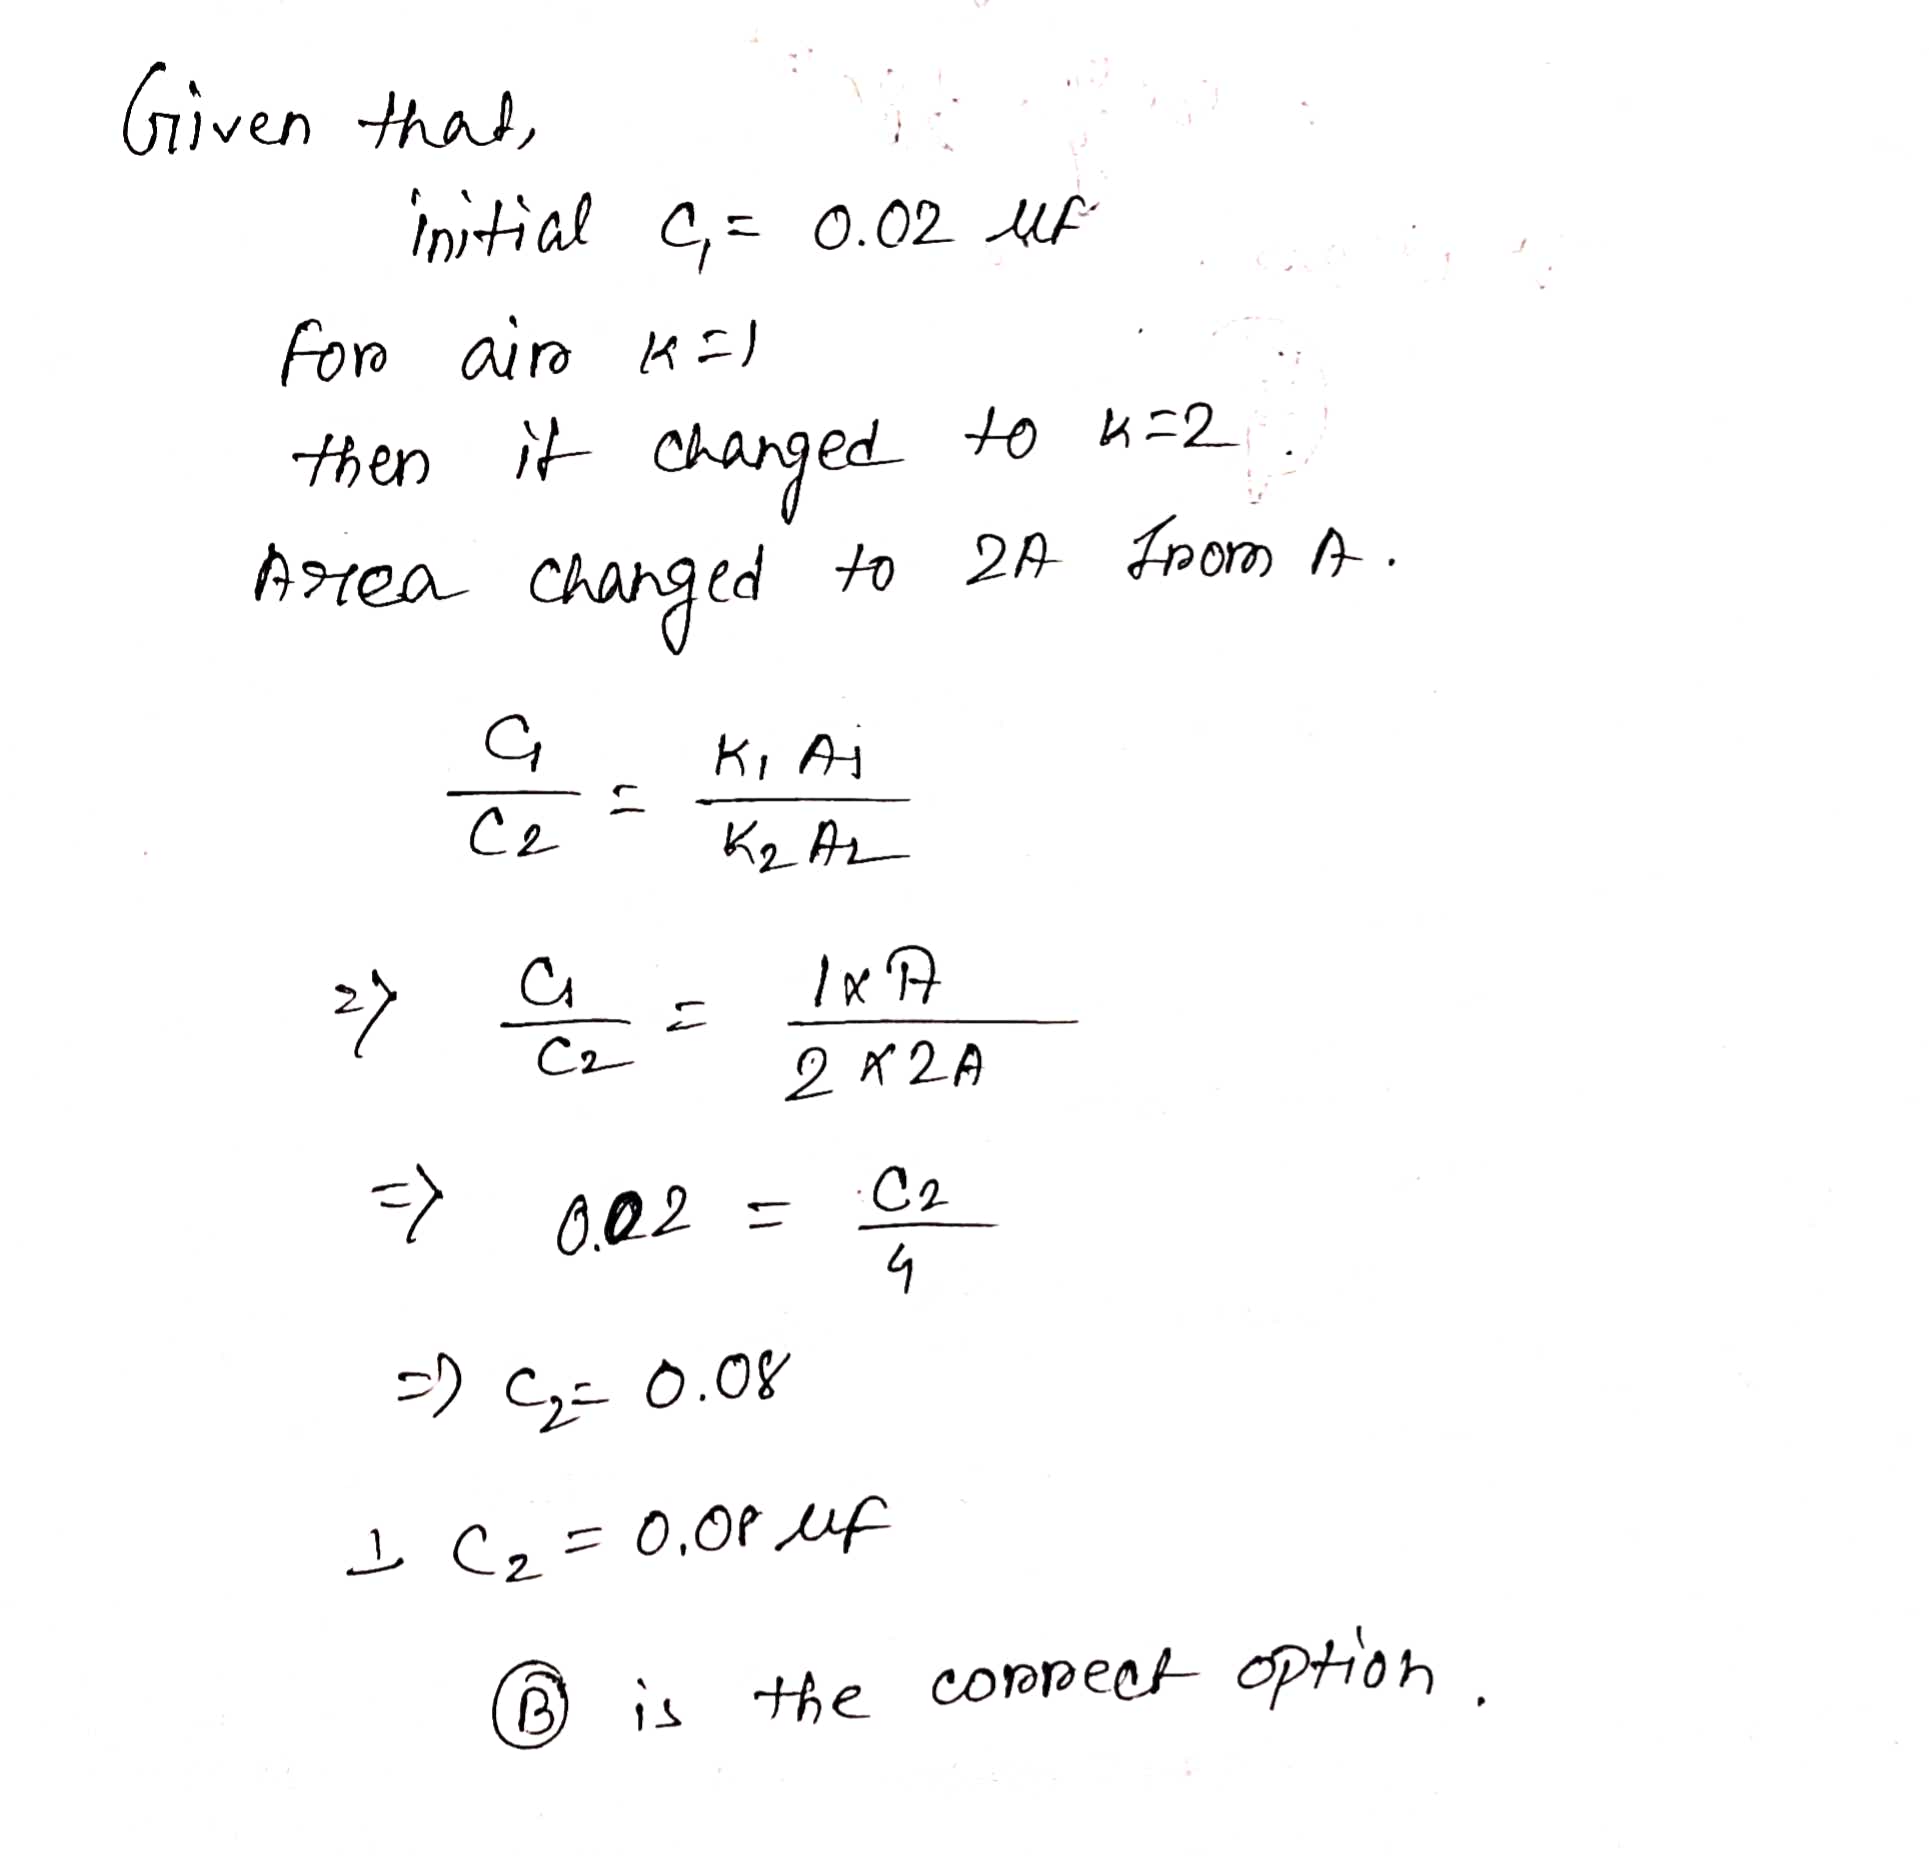 Given that,
initial C₁ = 0.02 μf
For air K=1
then it changed to K=2.
Area changed to 2A from A.
C₁/C₂ = K₁ A₁/K₂ A₂
=> C₁/C₂ = 1×A/2×2A
=> 0.02 = C₂/4
=> C₂ = 0.08
⊥ C₂ = 0.08 μf
Ⓑ is the correct option.